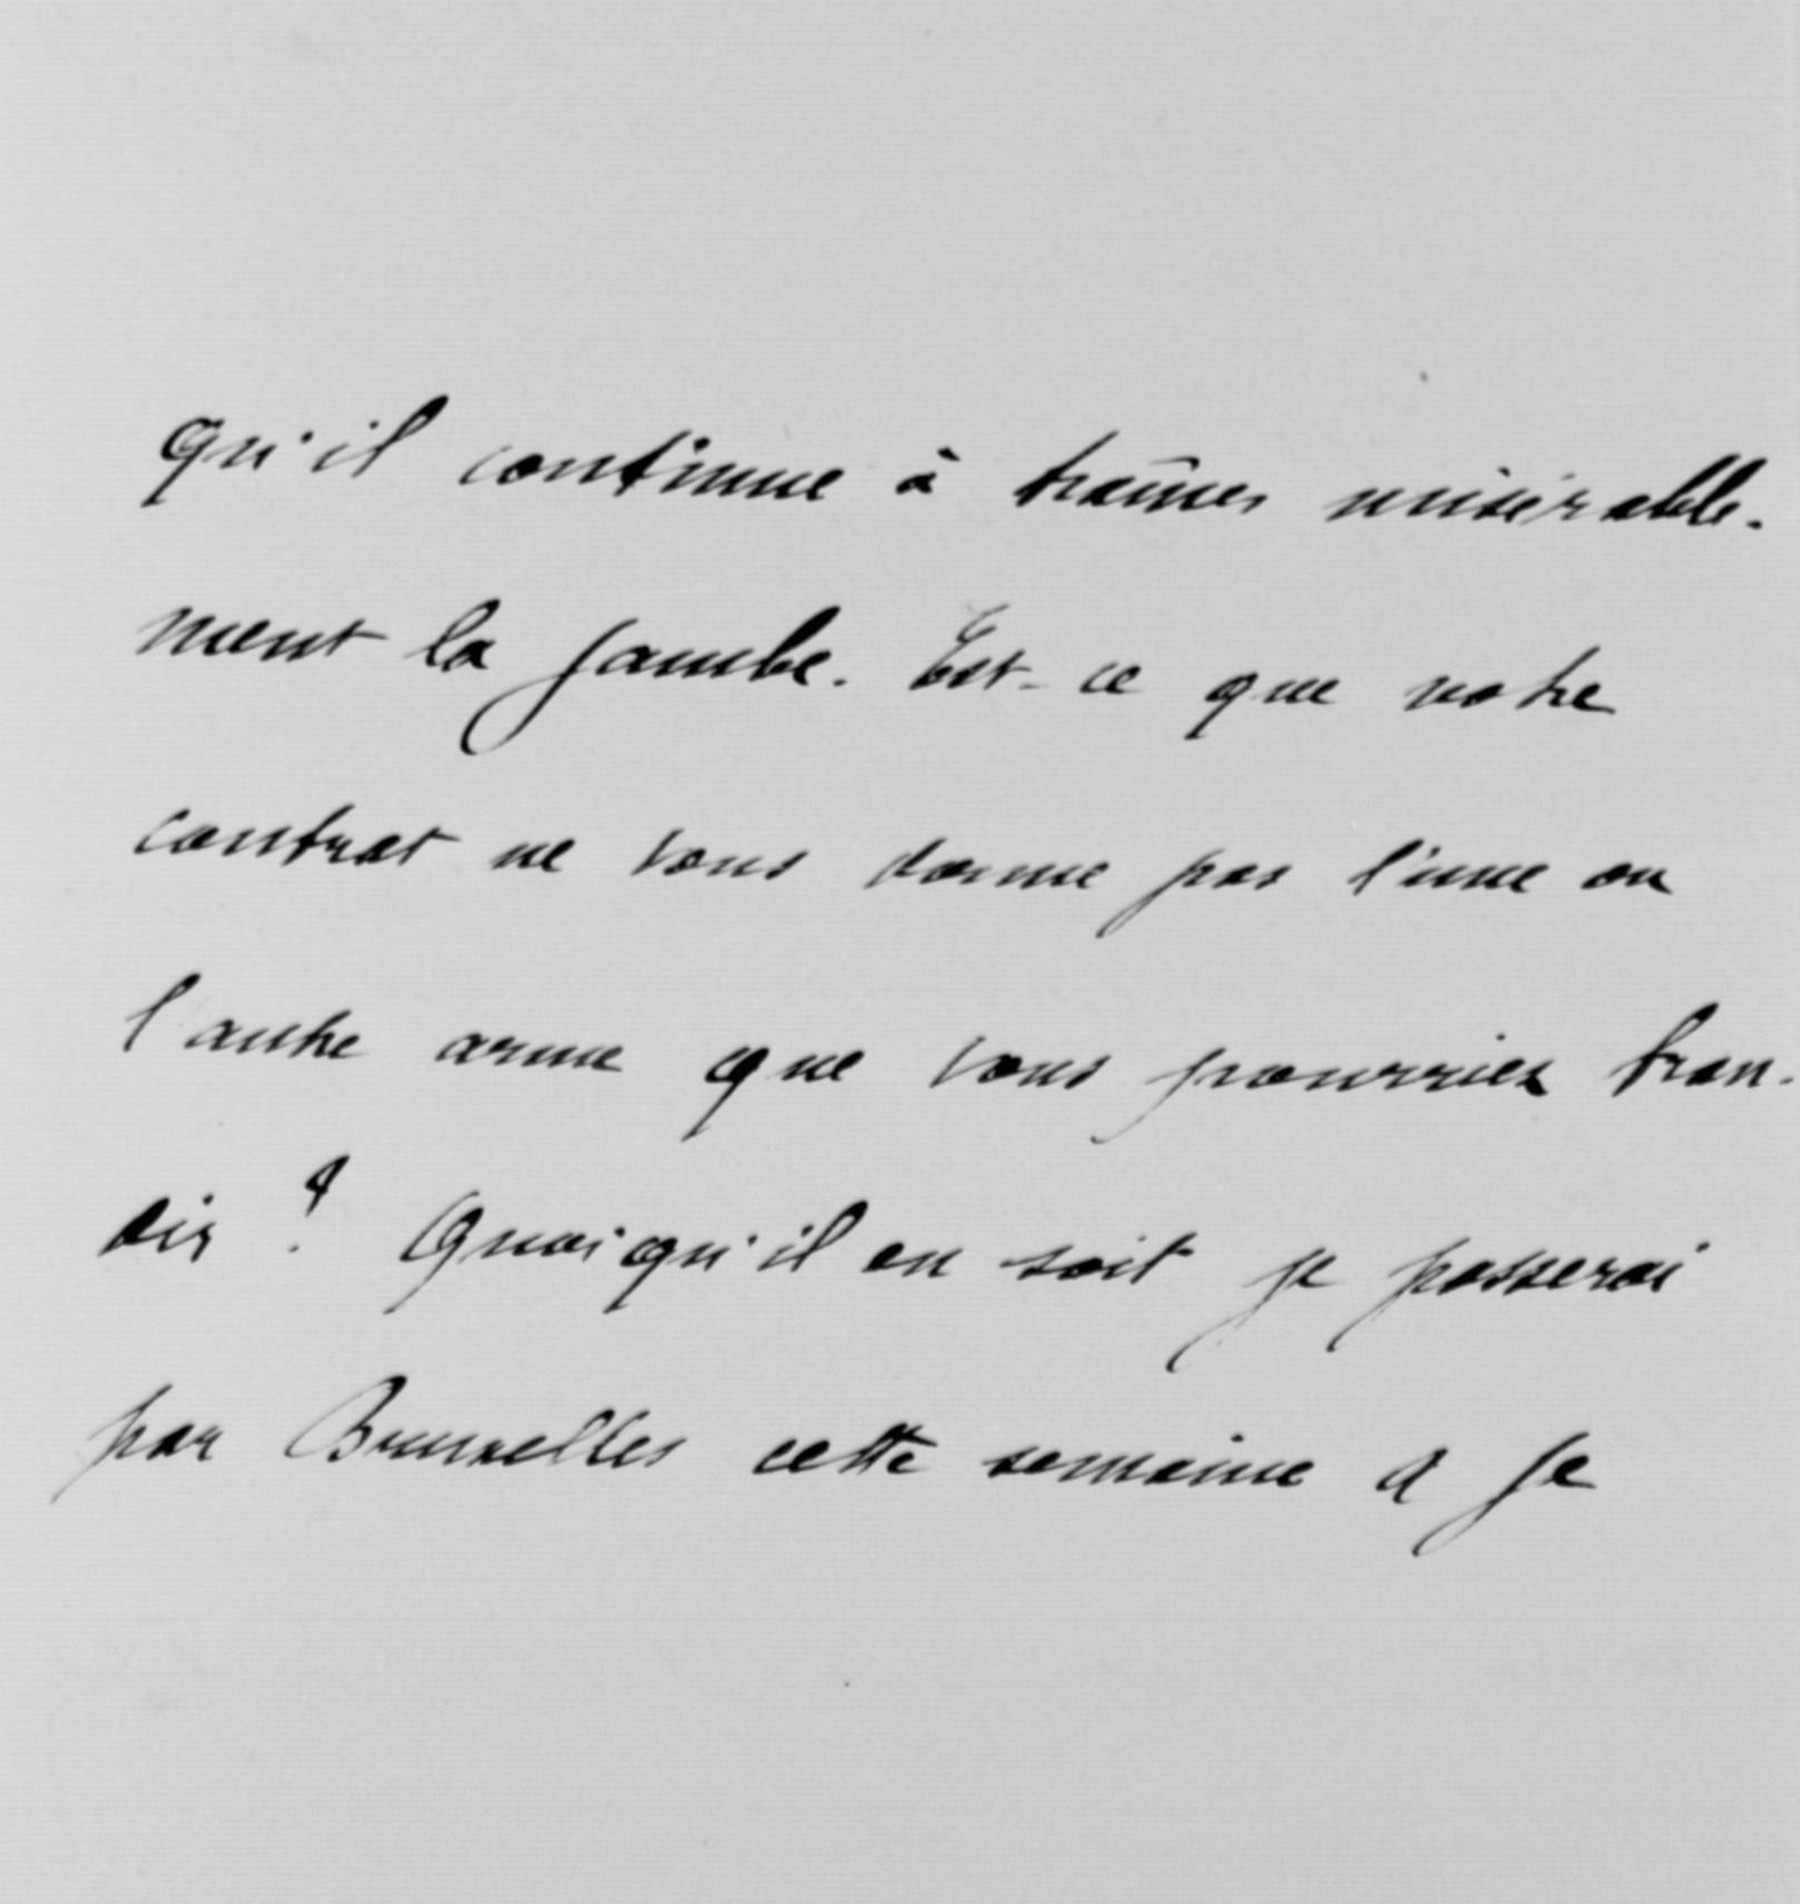 qu'il continue à traîner misérable-
ment la jambe. Est-ce que votre
contrat ne vous donne pas l'une ou
l'autre arme que vous pourriez bran-
dir ? Quoiqu'il en soit je passerai
par Bruxelles cette semaine & je